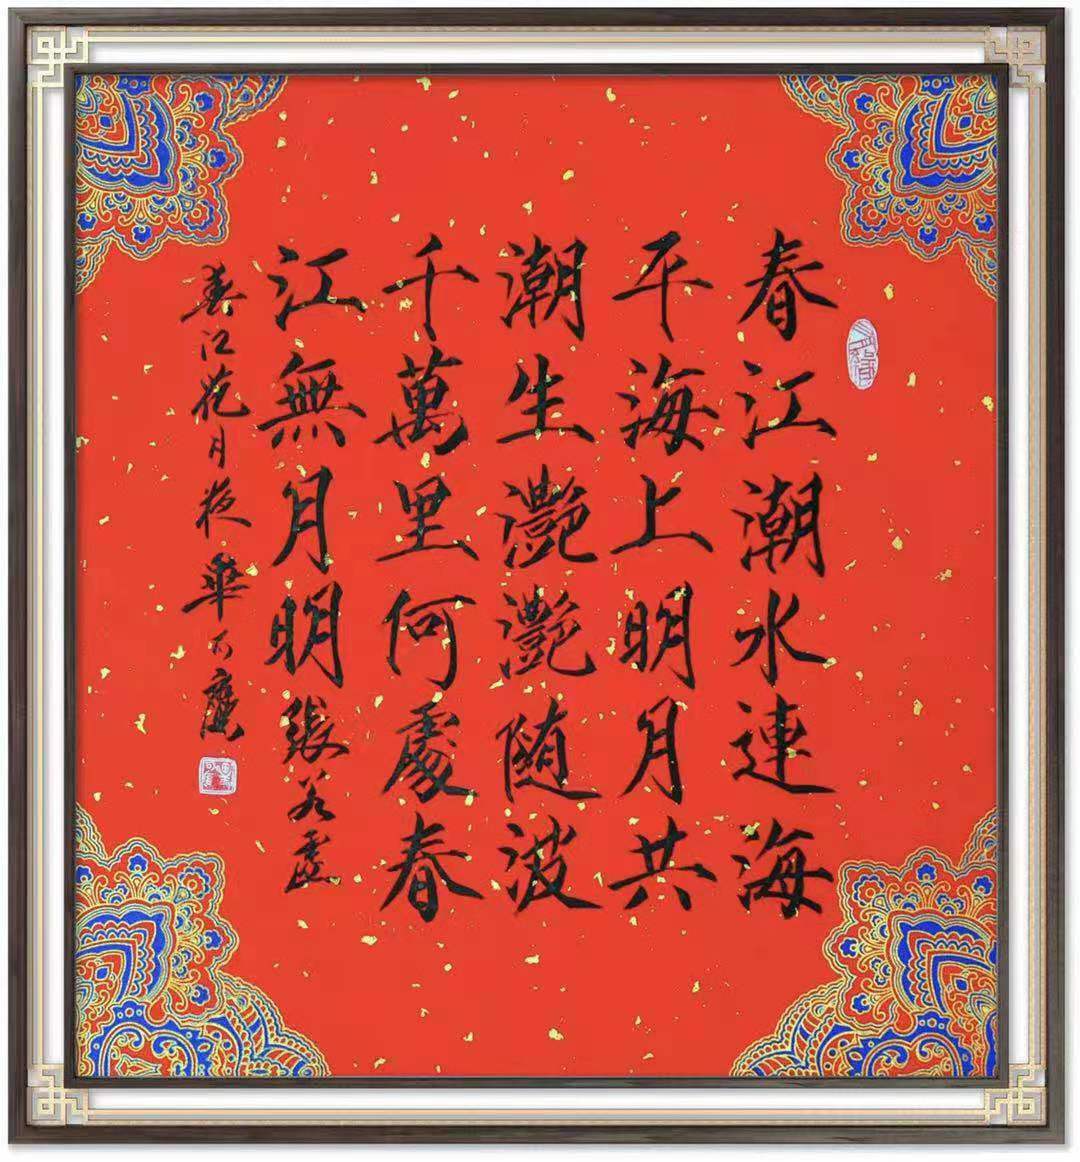 春江潮水連海
平海上明月共
潮生灧灧随波
千萬里何處春
江無月明張若虛
春江花月夜華